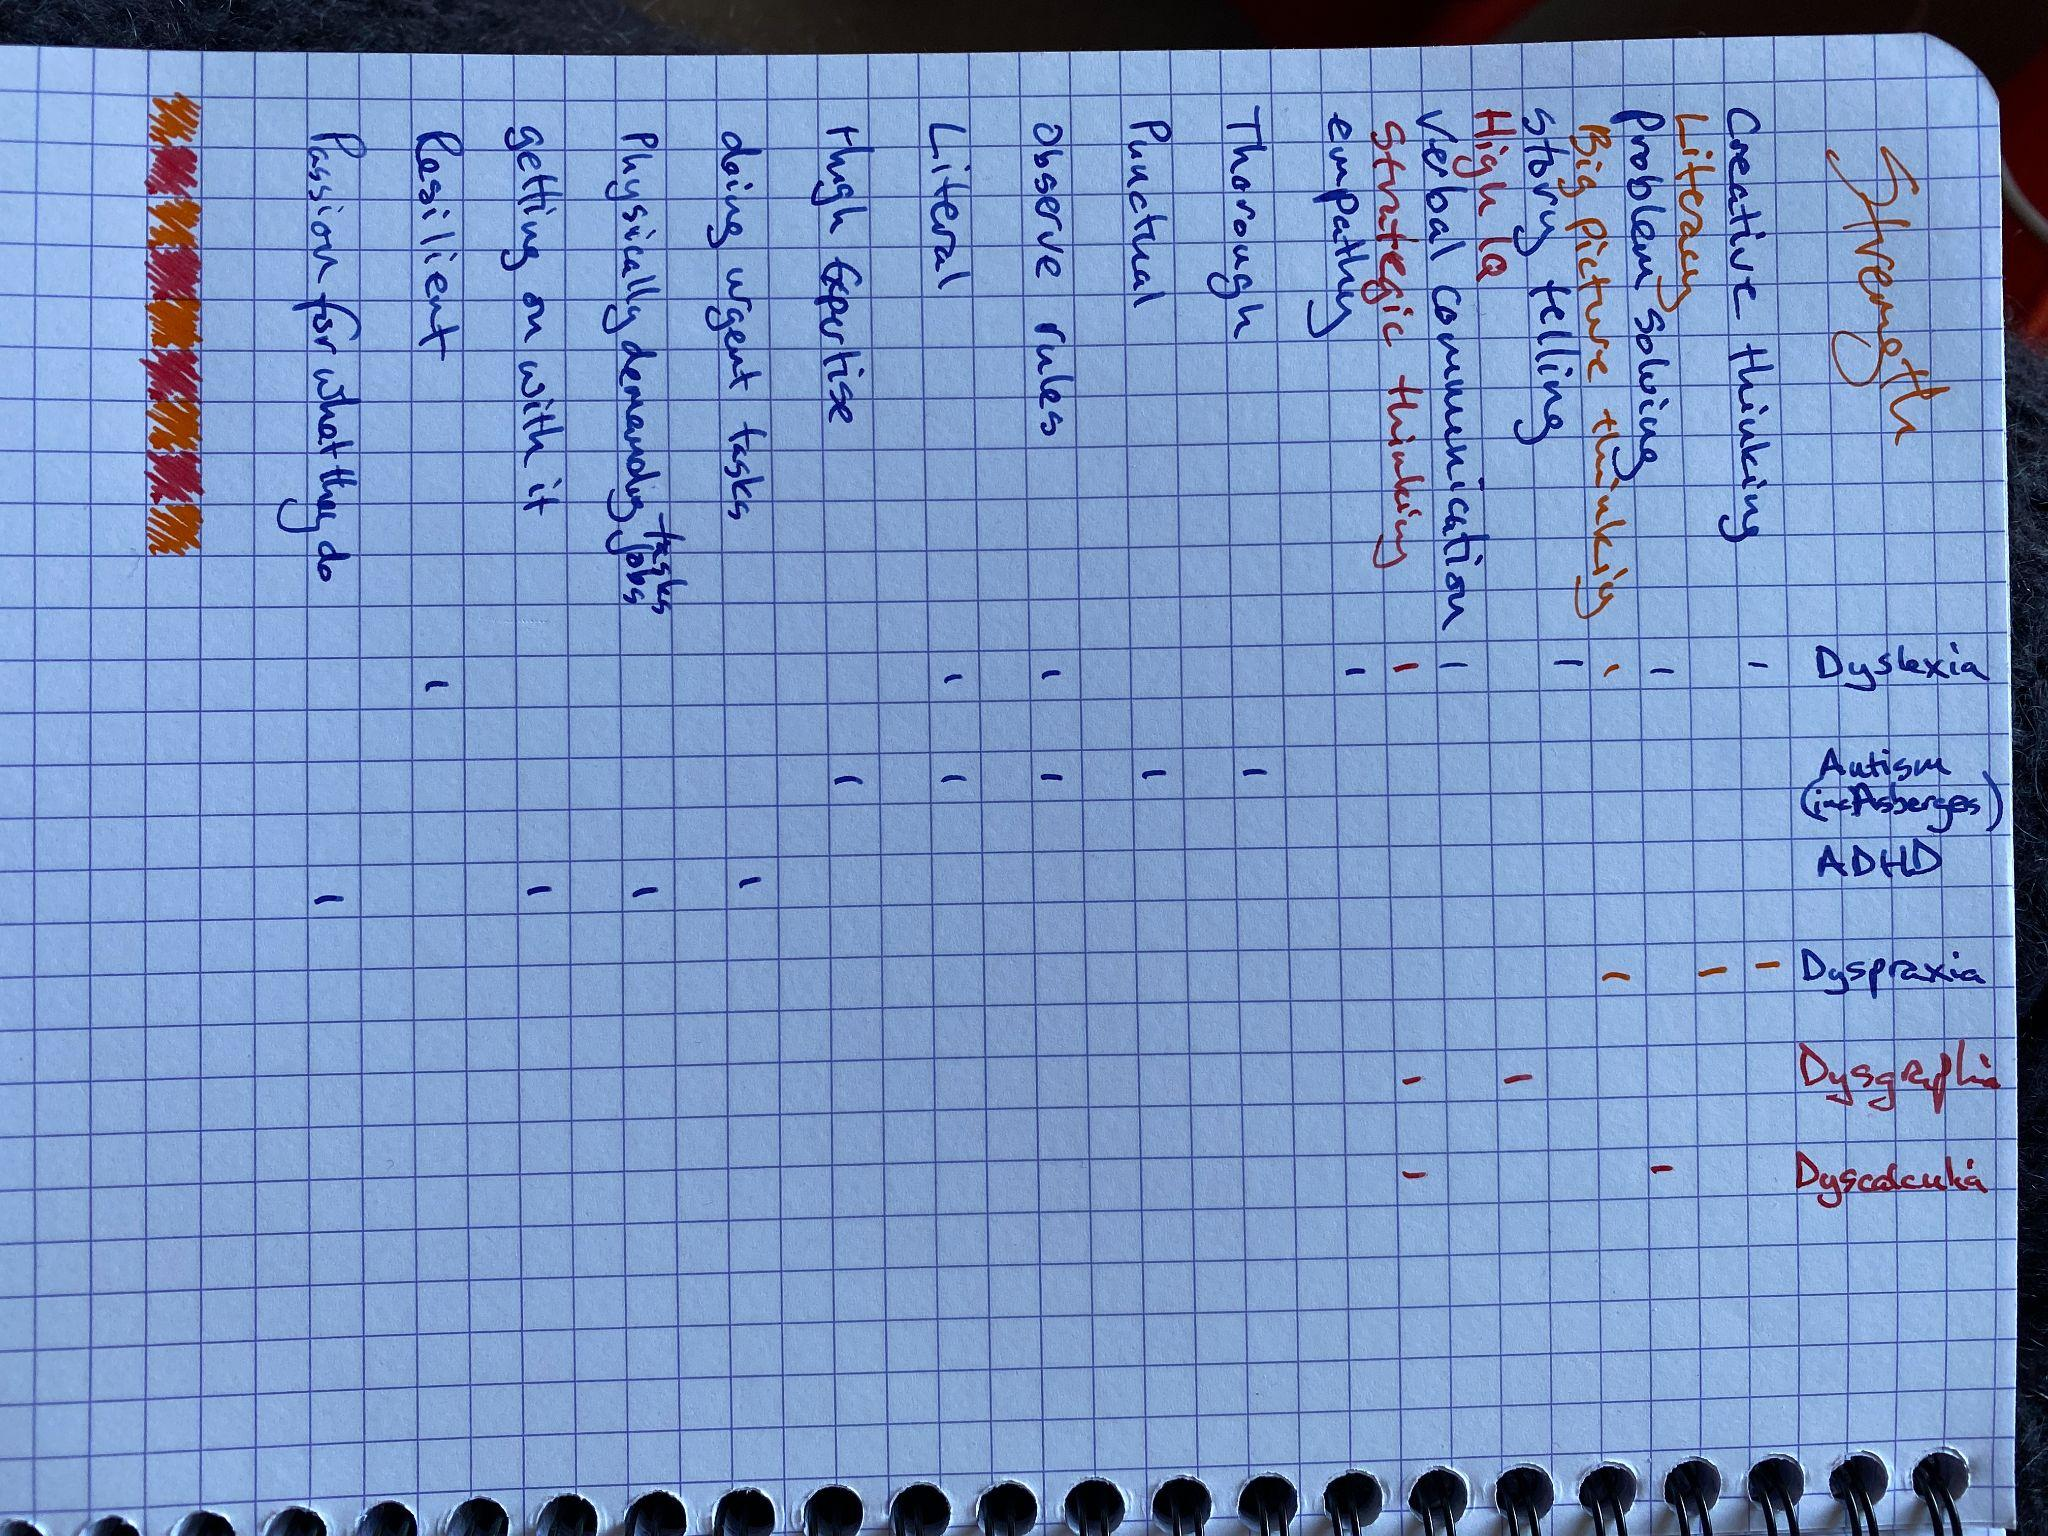 Strength Dyslexia Autism ADHD Dyspraxia Dysgraphia Dyscalculia
(inc Asberges)
Creative thinking - -
Literacy -
Problem solving - -
Big picture thinking - -
Story telling -
High IQ -
Verbal communication -
Strategic thinking - - -
empathy -
Thorough -
Punctual -
observe rules - -
Literal - -
High Expertise -
doing urgent tasks -
tasks
Physically demanding jobs -
getting on with it -
Resilient -
Passion for what they do -